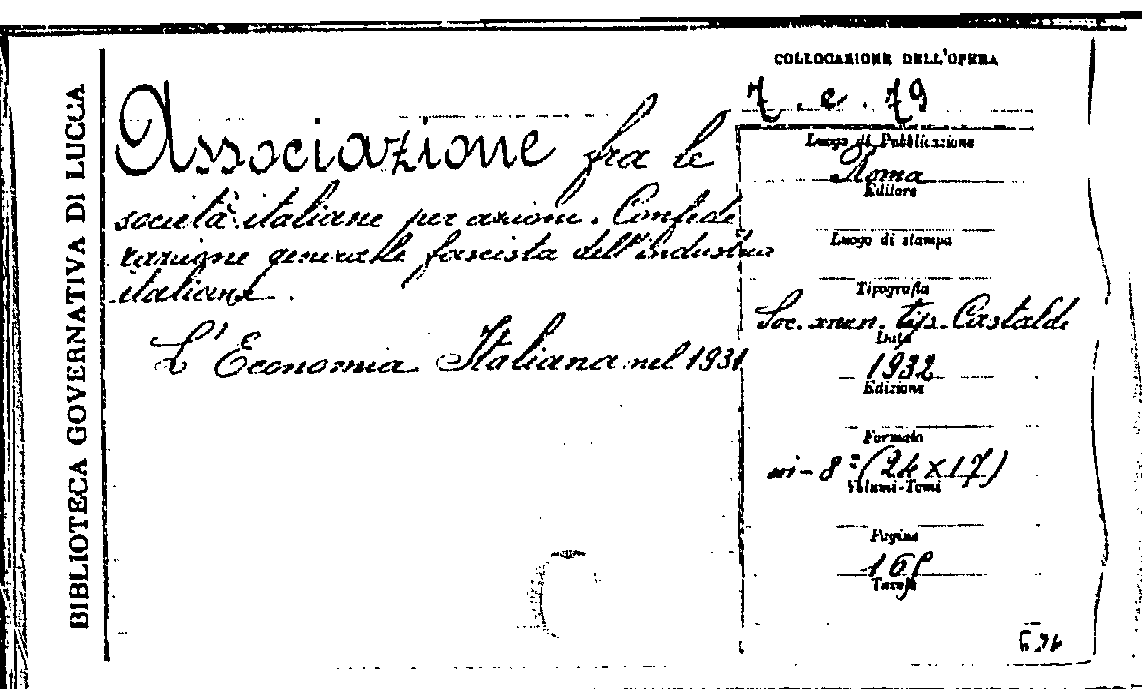 BIBLIOTECA GOVERNATIVA DI LUCCA
Associazione fra le
società italiane per azioni. Confede
razione generale fascista dell'industria
italiana.
L'Economia Italiana nel 1931
COLLOCAZIONE DELL'OPERA
7. c. 79
Luogo di Pubblicazione
Roma
Editore
Luogo di stampa
Tipografia
Soc. anon. tip. Castaldi
Data
1932
Edizione
Formato
in-8° (24x17)
Volumi-Tomi
Pagine
Tavole